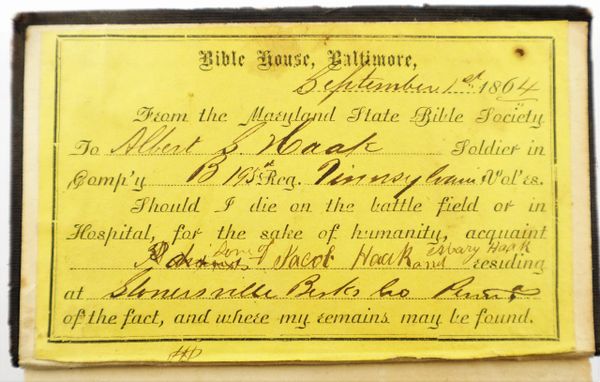 Bible House, Baltimore,
September 1st 1864
From the Maryland State Bible Society
To Albert S. Haak Soldier in
Comp'y B 195st Reg. Pinnsylvania Vol's.
Should I die on the battle field or in
Hospital, for the sake of humanity, acquaint
Jacob Haak and Haak residing
at Stonersville Berks Co Penna
of the fact, and where my remains may be found.